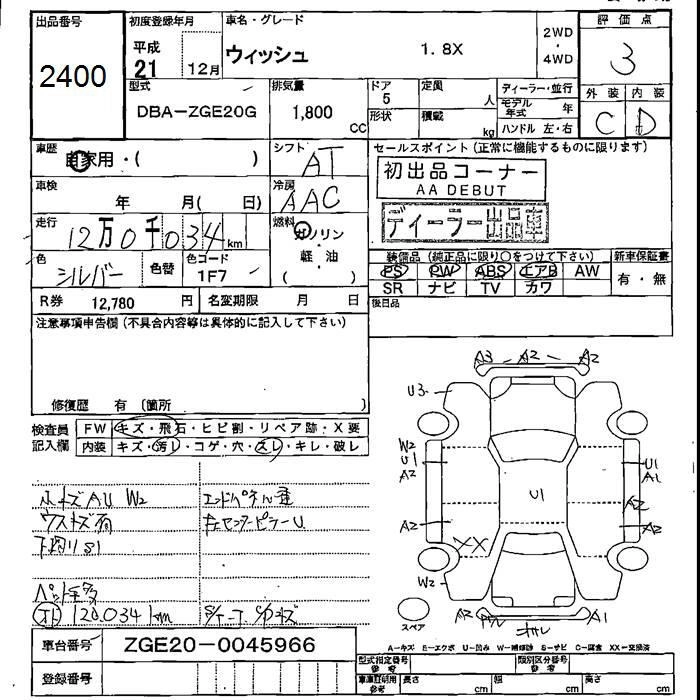 出品番号
2400
初度登録年月
平成
21
12月
車名・グレード
ウィッシュ
1.8X
2WD
・
4WD
評価点
3
外装
内装
C
D
型式
DBA-ZGE20G
排気量
1,800
CC
ドア
5
形状
定員
人
積載
kg
ディーラー・並行
モデル年式
年
ハンドル 左・右
車歴
自家用・( )
シフト
AT
車検
年 月( 日)
冷房
AAC
走行
12万0千034km
燃料
ガソリン
・
軽・油
色
シルバー
色替
色コード
1F7
R券
12,780
円
名変期限
月
日
セールスポイント(正常に機能するものに限ります)
初出品コーナー
AA DEBUT
ディーラー出品車
装備品(純正品に限り○をつけて下さい)
新車保証書
PS PW ABS エアB AW
SR ナビ TV カワ
有・無
後日品
注意事項申告欄(不具合内容等は具体的に記入して下さい)
修復歴 有(箇所
検査員
記入欄
FW
キズ・飛石・ヒビ割・リペア跡・X要
内装
キズ・汚レ・コゲ・穴・スレ・キレ・破レ
小キズAU W2
ウスキズ有
下廻りS1
120,034km
A3
A2
A2
U3
W2
U1
A2
U1
U1
A1
A2
A2
A2
XX
W2
A2
A1
スペア
A-キズ E-エクボ U-凹み W-補修跡 S-サビ C-腐食 XX-交換済
車台番号
ZGE20-0045966
登録番号
型式指定番号
参考
類別区分番号
参考
車庫証明用
参考
長さ
cm
幅
cm
高さ
cm